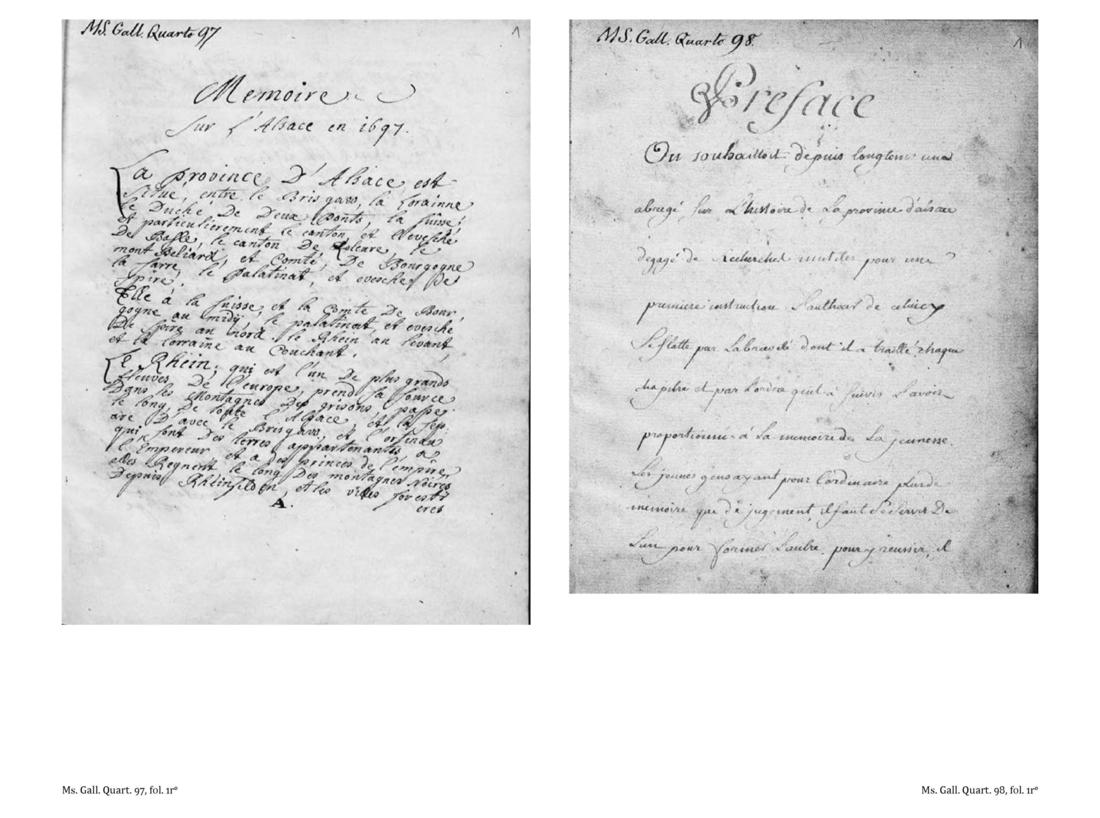 MS. Gall. Quarto 97
1
Memoire
sur l'Alsace en 1697.
La province D'Alsace est
Situe, entre le Brisgaw, la Lorainne
le Duché De Deux Ponts, la Suisse,
et particulierement le canton et Eveseché
De Basle, le canton De Soleure,
mont Beliard, et Comté, De Bourgogne
la Sarre, le Palatinat, et evesché De
Spire,
Elle à la Suisse, et la Comté De Bour,
gogne au midy, le palatinat, et evesché
De Spire au nord, le Rhein au levant,
et la lorraine au Couchant.
Le Rhein, qui est l'un De plus grands
fleuves De l'europe, prend sa source
Dans les Montagnes Des grisons, passe
le long De toute l'Alsace, et la sep.
are D'avec le Brisgaw, et l'ortnau
qui sont Des terres appartenantes a
l'Empereur et a Des princes de l'empire
elles Regnent le long Des montagnes Noires
Depuis Rheinfelden, et les villes forestt
A. eres
MS. Gall. Quarto 98.
1
Preface
On souhaittoit depuis longtems une
abregé sur L'histoire de La province d'alsace
degagé de Recherches inutiles pour une
premiere instruction L'autheur de celuicy
Se flatte par La brieveté dont il a traitté chaque
chapitre et par L'ordre qu'il a suivis L'avoir
proportionné à La memoire de La jeunesse.
Les jeunes gens ayant pour L'ordinaire plus de
memoire que de jugement, il faut Se Servir De
L'un pour former L'autre, pour y reussir, il
Ms. Gall. Quart. 97, fol. 1rº
Ms. Gall. Quart. 98, fol. 1rº